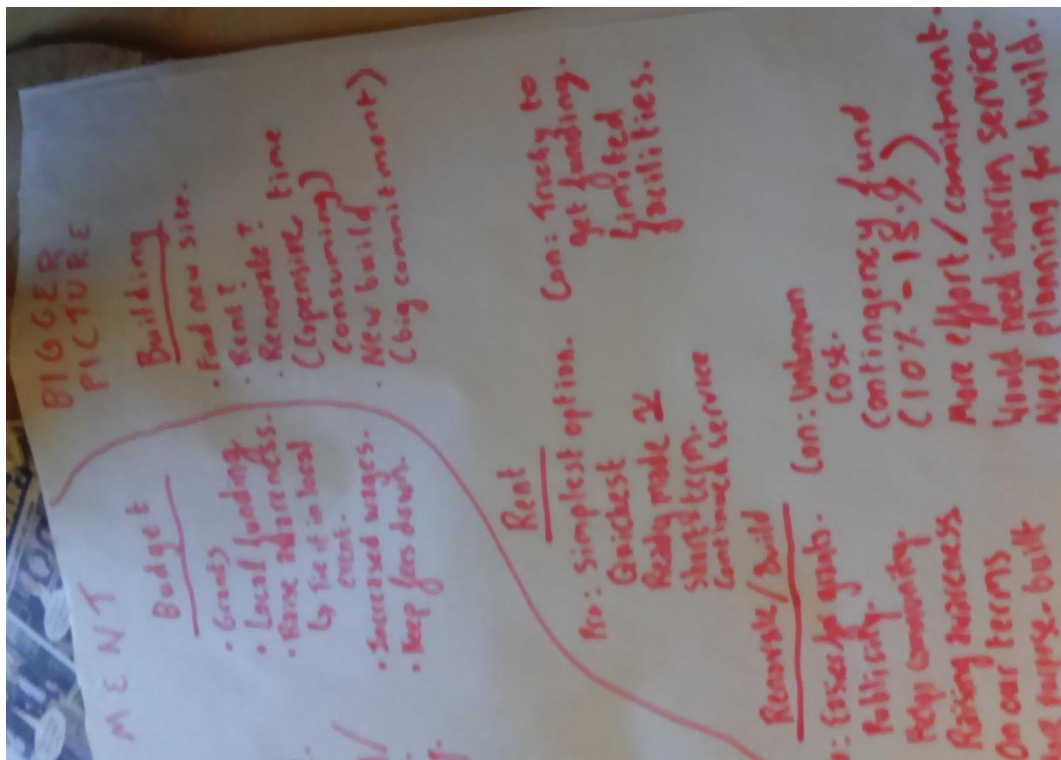 MENT
Budget
· Grants
· Local funding
· Raise awareness.
↳ Tie it in local
event.
· Increased wages.
· Keep fees down.
BIGGER
PICTURE
Building
· Find new site.
· Rent?
· Renovate?
(Expensive, time
consuming)
· New build
(big commitment)
Rent
Pro: Simplest option.
Quickest
Ready made
Short term.
Continued service
Con: Tricky to
get funding.
Limited
facilities.
Renovate/Build
: Easier for grants.
Publicity.
Help community.
Raising awareness
On our terms
purpose-built
Con: Unknown
cost.
Contingency fund
(10% - 15%)
More effort/commitment.
Would need interim service.
Need planning for build.